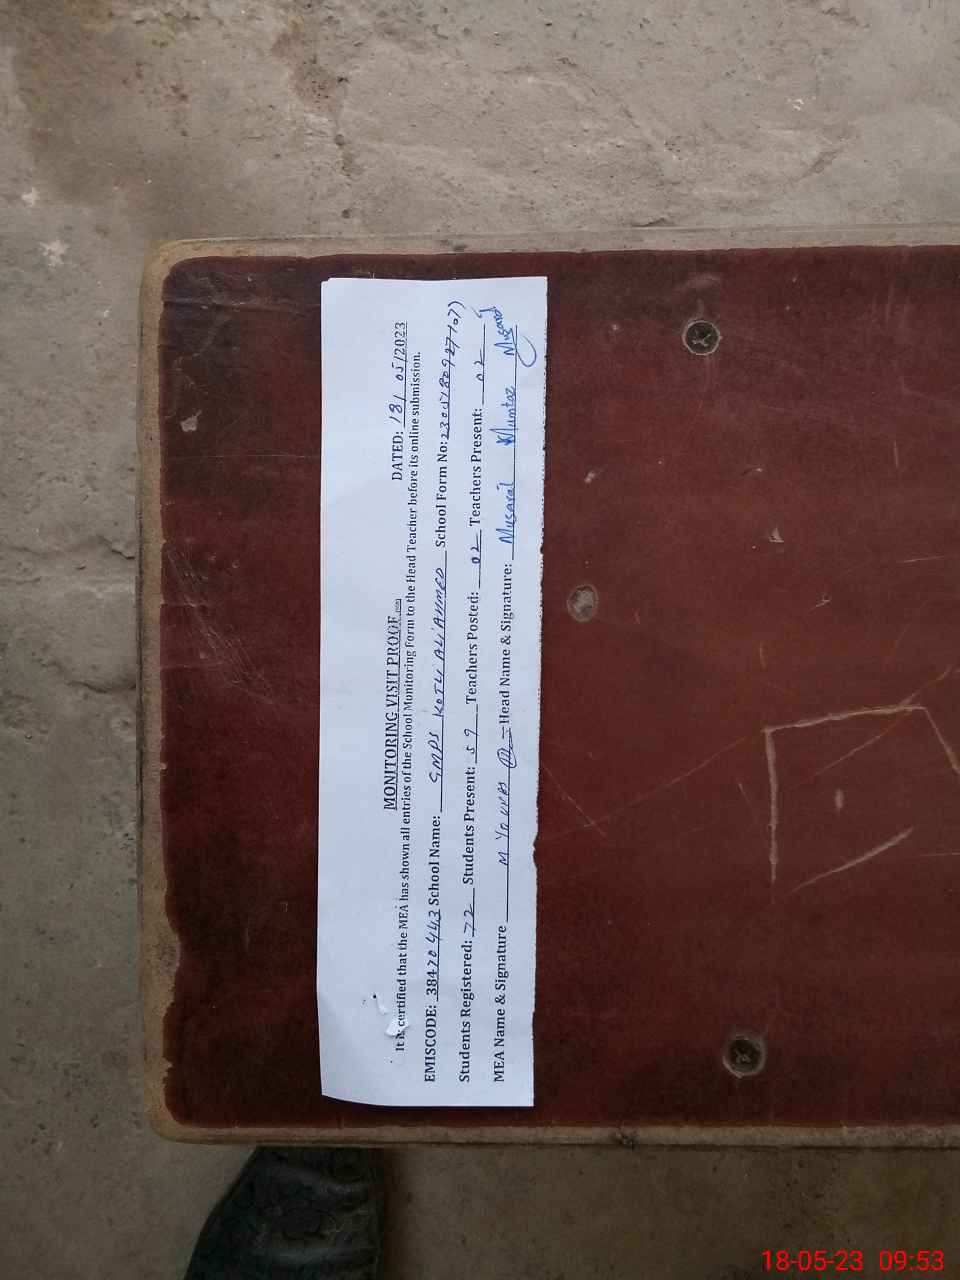 MONITORING VISIT PROOF
DATED: 18/05/2023
It is certified that the MEA has shown all entries of the School Monitoring Form to the Head Teacher before its online submission.
EMISCODE: 38420443 School Name: GMPS KOTLI ALI AHMED School Form No:
Students Registered: 72 Students Present: 59 Teachers Posted: 02 Teachers Present: 02
MEA Name & Signature M YOUNAS Head Name & Signature: Musarat Mumtaz Musarat
18-05-23 09:53